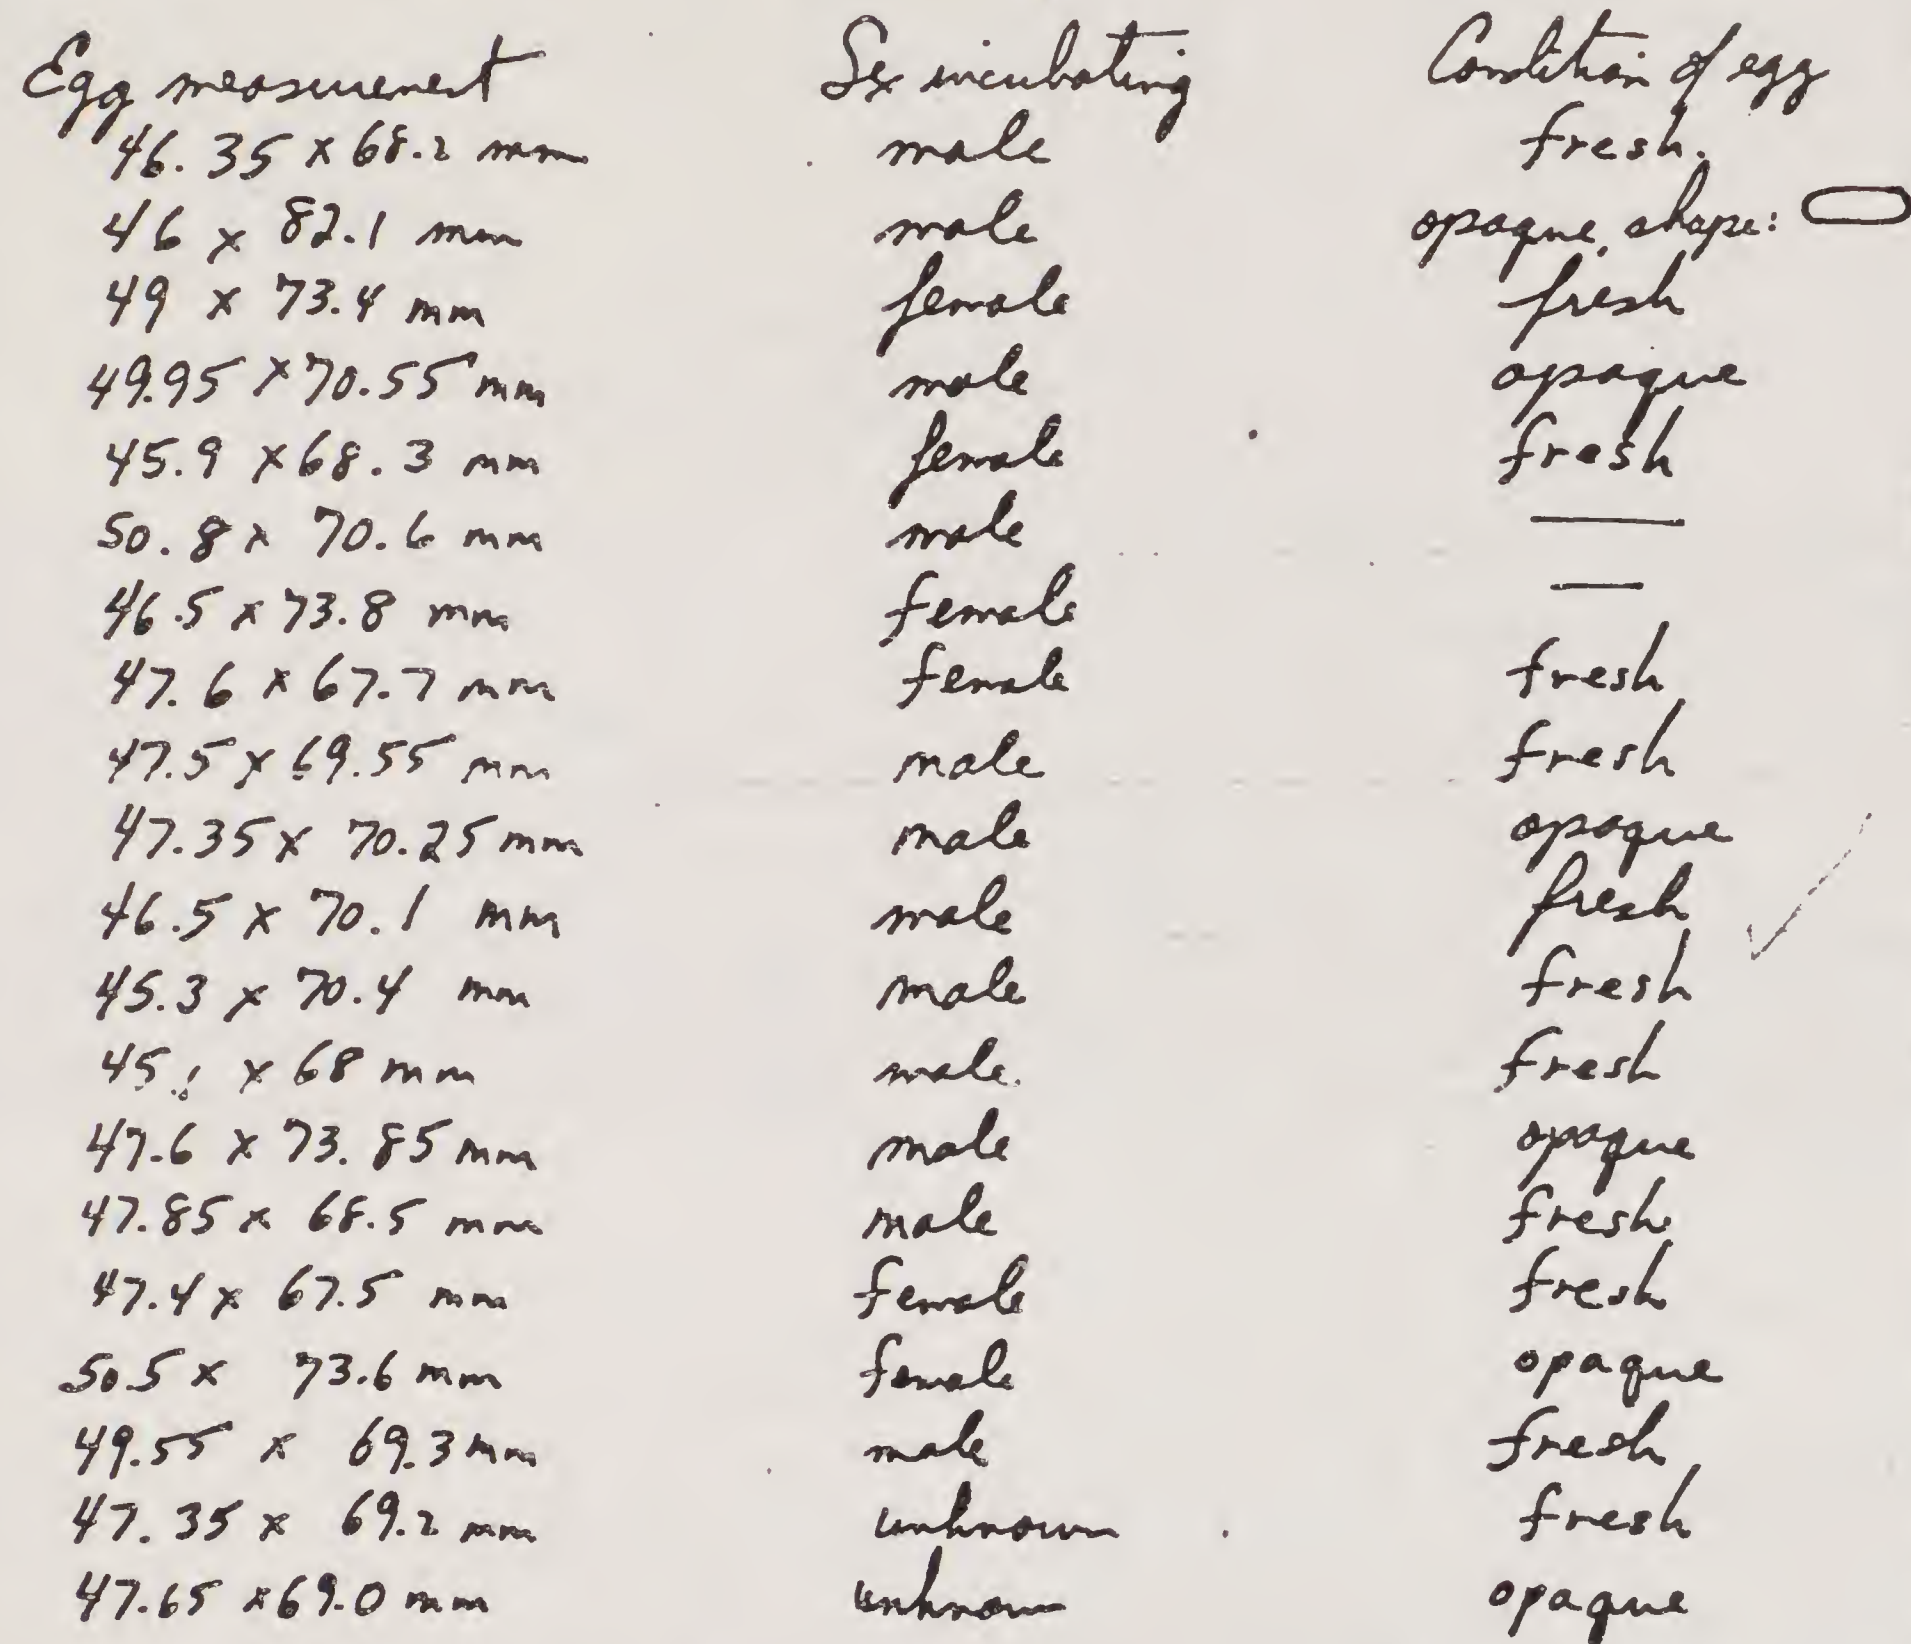 Egg measurement Sex incubating Condition of egg
46.35 x 68.2 mm male fresh.
46 x 82.1 mm male opaque, shape:
49 x 73.4 mm female fresh
49.95 x 70.55 mm male opaque
45.9 x 68.3 mm female fresh
50.8 x 70.6 mm male —
46.5 x 73.8 mm female —
47.6 x 67.7 mm female fresh
47.5 x 69.55 mm male fresh
47.35 x 70.25 mm male opaque
46.5 x 70.1 mm male fresh
45.3 x 70.4 mm male fresh
45.1 x 68 mm male. fresh
47.6 x 73.85 mm male opaque
47.85 x 68.5 mm male fresh
47.4 x 67.5 mm female fresh
50.5 x 73.6 mm female opaque
49.55 x 69.3 mm male fresh
47.35 x 69.2 mm unknown fresh
47.65 x 69.0 mm unknown opaque